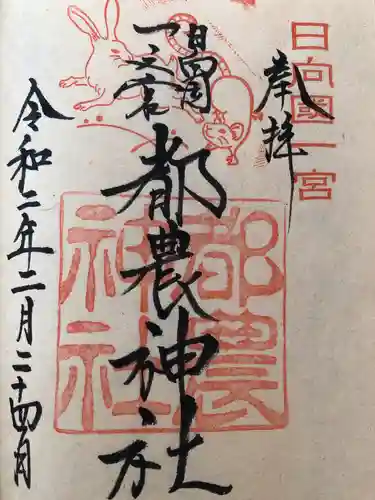 日向國一宮
奉拝
日向國
一之宮
都農神社
都農神社
令和二年二月二十四日